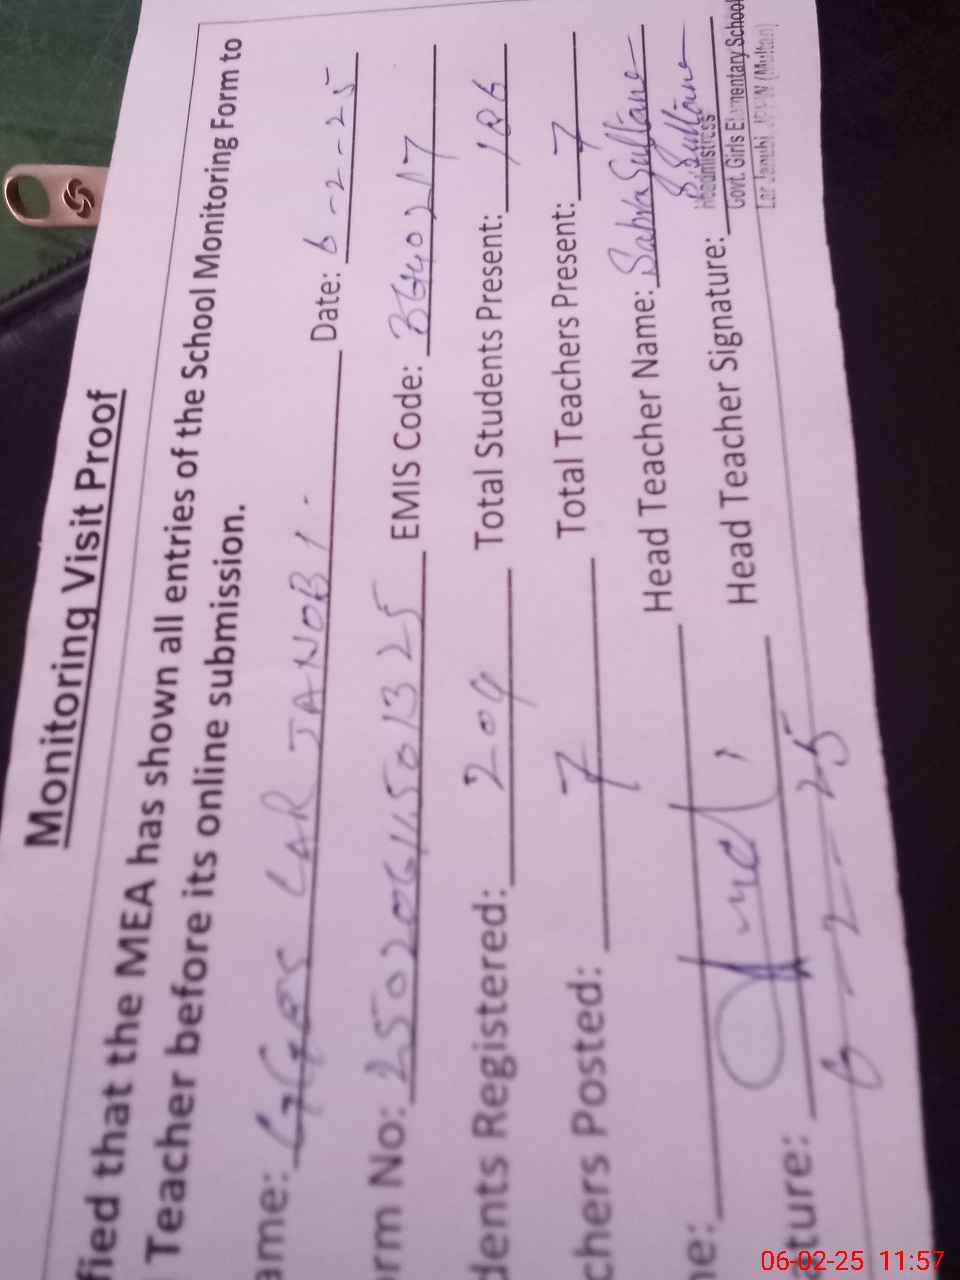 Monitoring Visit Proof
fied that the MEA has shown all entries of the School Monitoring Form to
Teacher before its online submission.
ame: GGES LAR JANOBI. Date: 6-2-25
rm No: EMIS Code:
dents Registered: 209 Total Students Present: 186
chers Posted: 7 Total Teachers Present: 7
ne: Head Teacher Name: Sabra Sultana
ture: Head Teacher Signature: S. Sultana
6-2-25
Headmistress
Govt. Girls Elementary School
Lar Janubi (Multan)
06-02-25 11:57